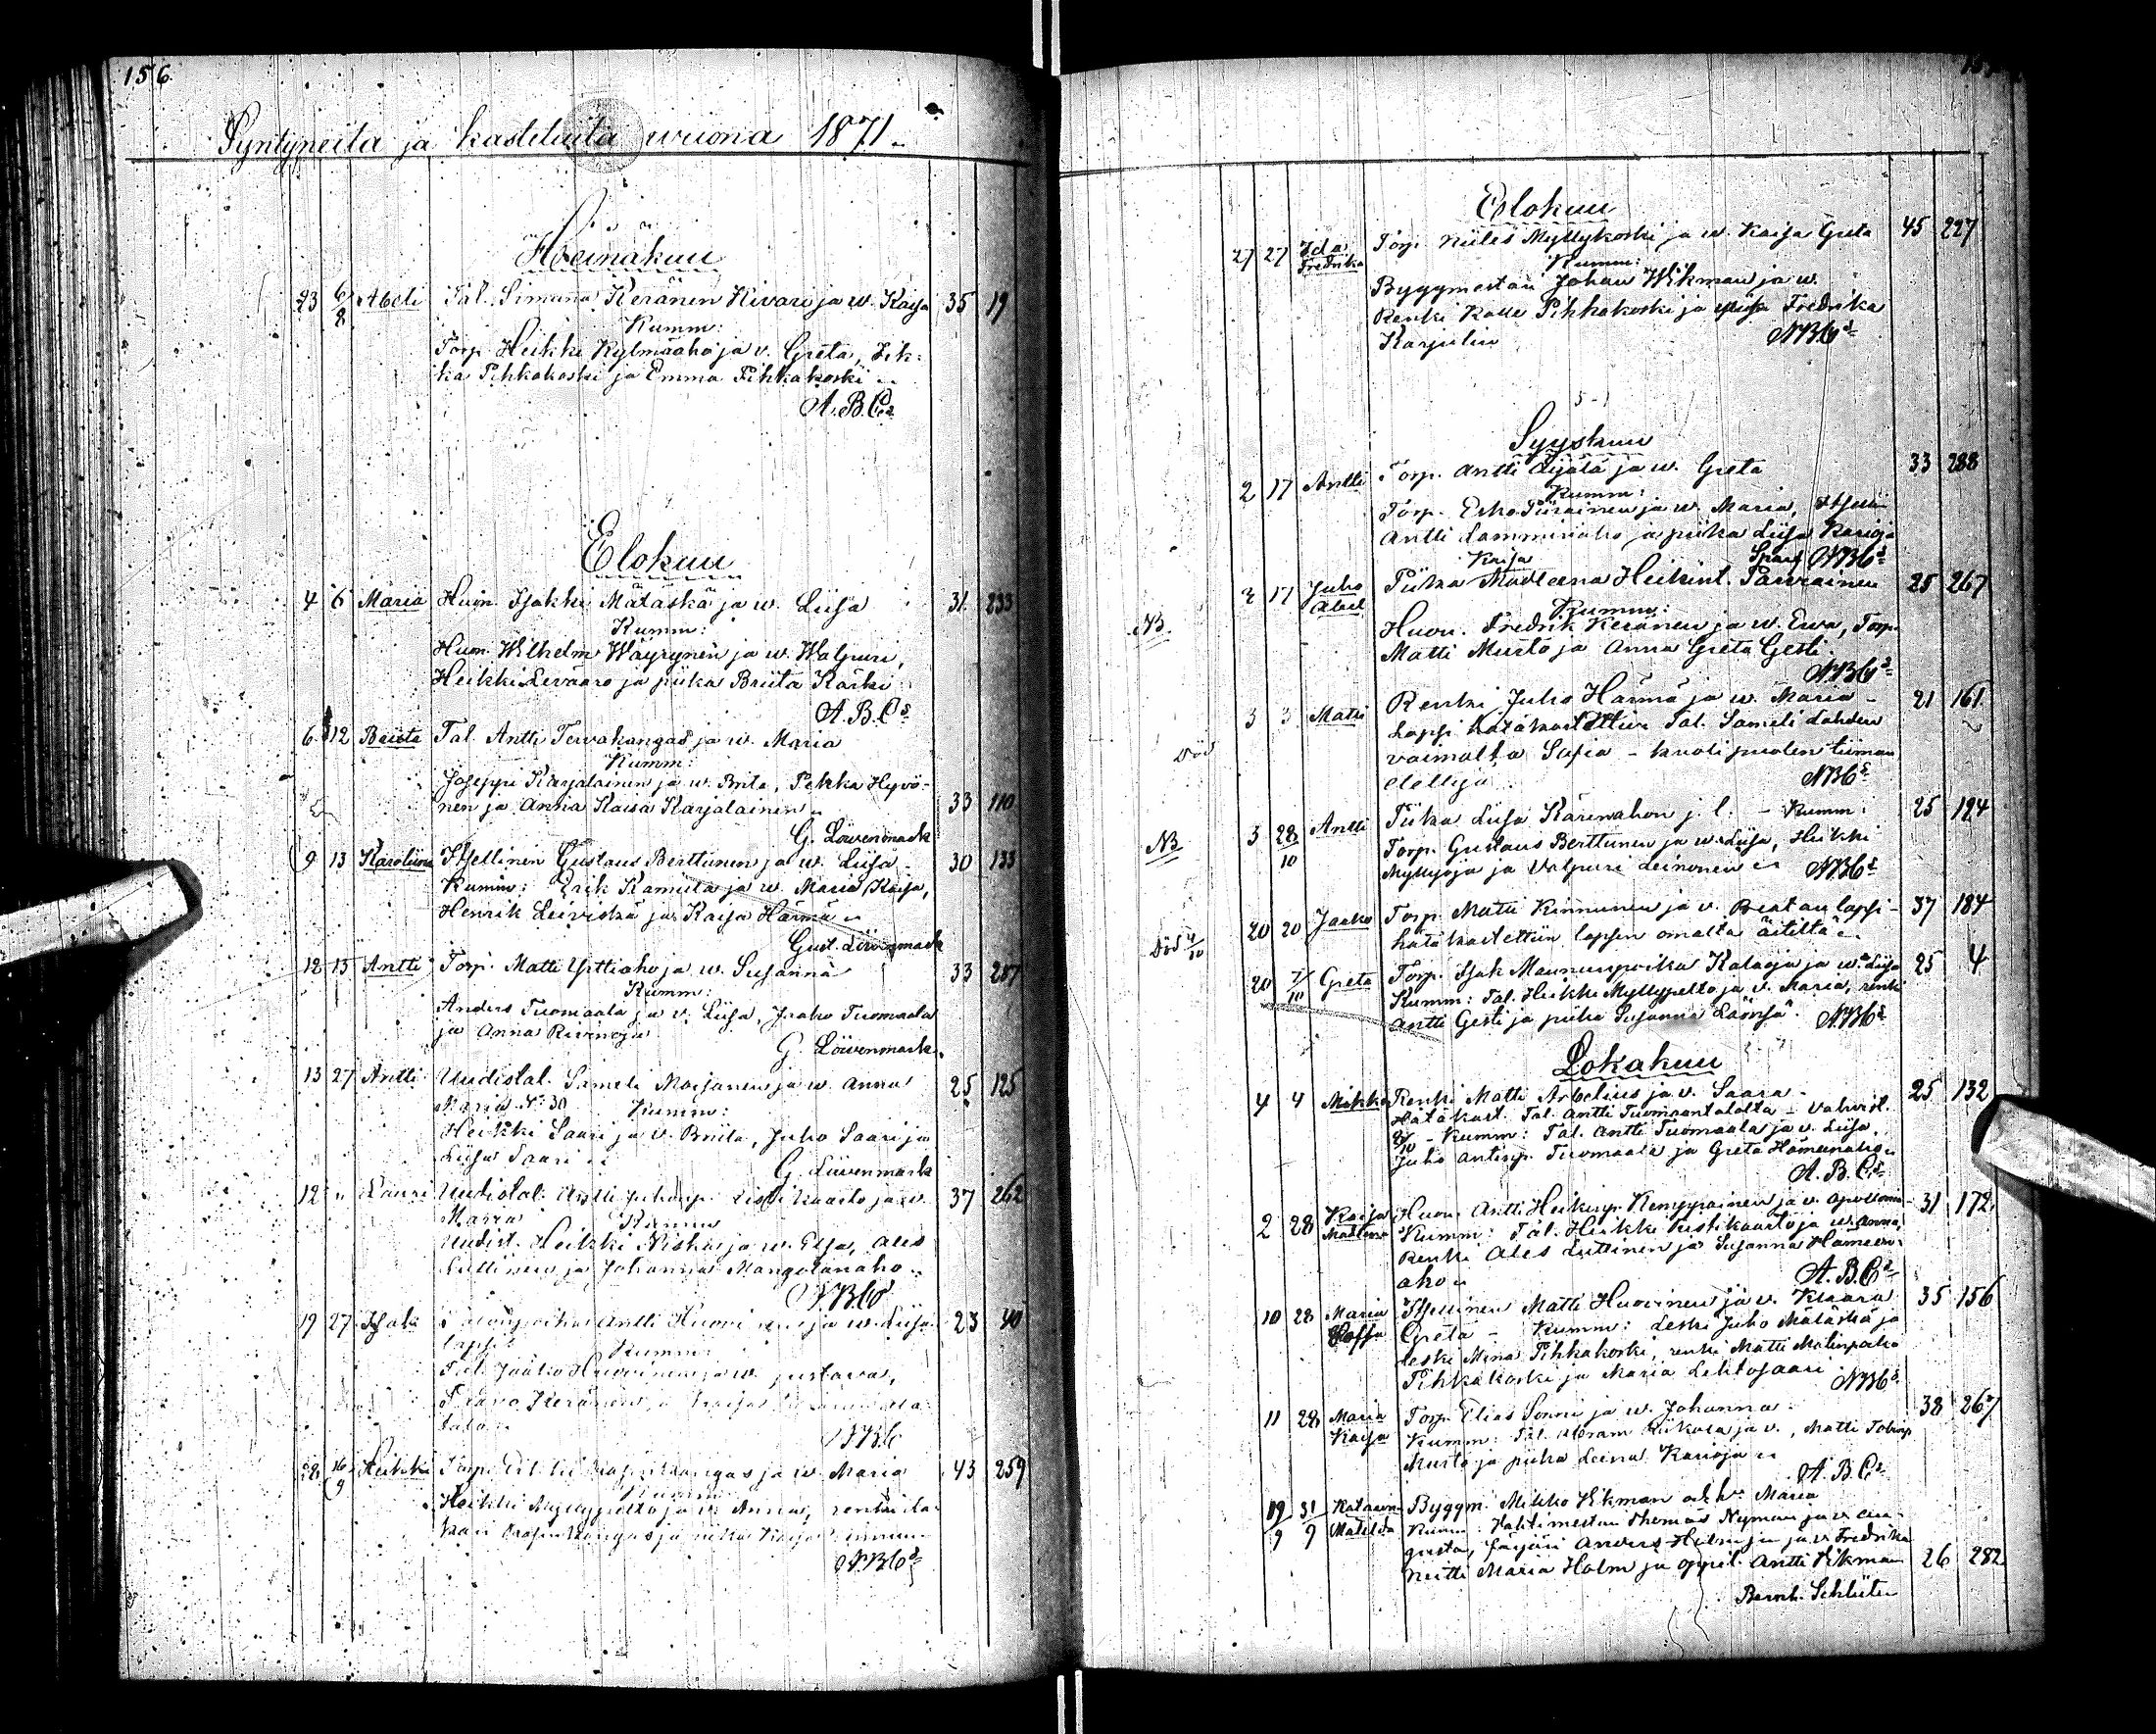 156
Syntyneitä ja kastetuita wuona 1871.
Heinäkuu
23 6/8 Abeli Tal. Simuna Keränen Kivari ja w. Kaisa 35 19
Kumm:
Torp. Heikki Kylmäaho ja v. Greta, Iik-
ka Pihkakoski ja Emma Pihkakoski
A.B.Cs
Elokuu
4 6 Maria Huon. Isakki Mätäskä ja w. Liisa 31 233
Kumm:
Huon. Wilhelm Wäyrynen ja w. Walpuri,
Heikki Leväaro ja piika Briita Karki
A.B.Cs
6 12 Briita Tal. Antti Tervakangas ja w. Maria
Kumm:
Joseppi Karjalainen ja w. Brita, Pekka Hyvö-
nen ja Anna Kaisa Karjalainen 33 110
G. Löwenmark
9 13 Karoliina Itsellinen Gustaus Berttunen ja w. Liisa 30 133
Kumm: Erik Kamula ja w. Maria Kaisa,
Henrik Leiviskä ja Kaisa Härmä
Gust. Löwenmark
12 13 Antti Torp. Matti Yttiaho ja w. Susanna 33 287
Kumm:
Anders Tuomaala ja v. Liisa, Jaako Tuomaala
ja Anna Rivinoja
G. Löwenmark
13 27 Antti Uudistal. Sameli Moijanen ja w. Anna 25 125
Maria No 30 Kumm:
Heikki Saari ja v. Briita, Juho Saari ja
Liisa Saari
G. Löwenmark
12 " Lauri Uudistal. Antti Juhonp. ja w. 37 262
Maria Kumm
Uudist. Heikki Niska ja w. Elsa, Ales
Luttinen ja Johanna Mangolanaho
19 27 Isak Antti Huovinen ja w. Liisa 23 40
lapsi Kumm:
Tal. Jaako Huovinen ja w. Justava,
Keränen
22 16/9 Heikki Torp. ja w. Maria 43 259
Kumm
Heikki Myllypelto ja v. Anna, renki
ja piika Kaisa
Elokuu
27 27 Ida Fredrika Torp. Niiles Myllykoski ja w. Kaisa Greta 45 227
Kumm:
Byggmestari Johan Wikman ja w.
Renki Kalle Pihkakoski ja Fredrika
Karjulin
Syyskuu
2 17 Antti Torp. Antti ja w. Greta 33 288
Kumm:
Torp. Esko Piirainen ja w. Maria, Itsell.
Antti Lamminaho ja piika Liisa Karioja
Kaisa
NB 17 Juho Abel Piika Madleena Heikint. Parviainen 25 267
Kumm:
Huon. Fredrik Keränen ja w. Ewa, Torp.
Matti Musto ja Anna Greta Gesti.
3 3 Matti Renki Juho Härmä ja w. Maria - 21 161
Lapsi hätäkastettiin Tal. Sameli Lahden
Död vaimolta Safia - kuoli puolen tiiman
eteltyä
NB 3 28/10 Antti Piika Liisa Kärenahon j. l. - Kumm: 25 194
Torp. Gustaus Berttunen ja w. Liisa, Heikki
Myllyoja ja Valpuri Leinonen
20 20 Jaako Torp. Matti Kinnunen ja v. Beatan lapsi - 37 184
Död 4/10 hätäkastettiin lapsen omalta äitiltä
20 7/10 Greta Torp. Isak Maununpoika Kalaoja ja w. Liisa 25 4
Kumm: Tal. Heikki Myllypelto ja v. Maria, renki
Antti Gesti ja piika Susanna Läönsä.
Lokakuu
4 4 Mikko Renki Matti Arbelius ja v. Saara - 25 132
Hätäkast. Tal. Antti Tuomaantalolta - Vahvist.
8/10 - Kumm: Tal. Antti Tuomaala ja v. Liisa,
Juho Antinp. Tuomaala ja Greta Hämeenaho
A.B.Cs
2 28 Kaisa Madlena Huon. Antti Heikinp. Kemppainen ja v. Apollonia 31 172
Kumm: Tal. Heikki Ristikaarto ja w. Anna,
Renki Ales Luttinen ja Susanna Hämeen-
aho
A.B.Cs
10 28 Maria Itsellinen Matti Huovinen ja v. Klaara 35 156
Greta - Kumm: Leski Juho Mätäskä ja
leski Mina Pihkakoski, renki Matti Matinpoika
Pihkakoski ja Maria Lehtosaari
11 28 Maria Kaisa Torp. Elias Sonni ja w. Johanna 38 267
Kumm: Tal. Abram Liikala ja v., Matti Tobinp.
Musto ja piika Leena Karioja
A.B.Cs
19/9 31/9 Katarina Matilda Byggm. Mikko Vikman och h. Maria
Kumm: Hahtimestari Thomas Nyman ja v. Au-
gusta, färjäri Anders Holm ja v. Fredrika
Neitti Maria Holm ja oppil. Antti Vikman 26 282
Bernh. Schlüter